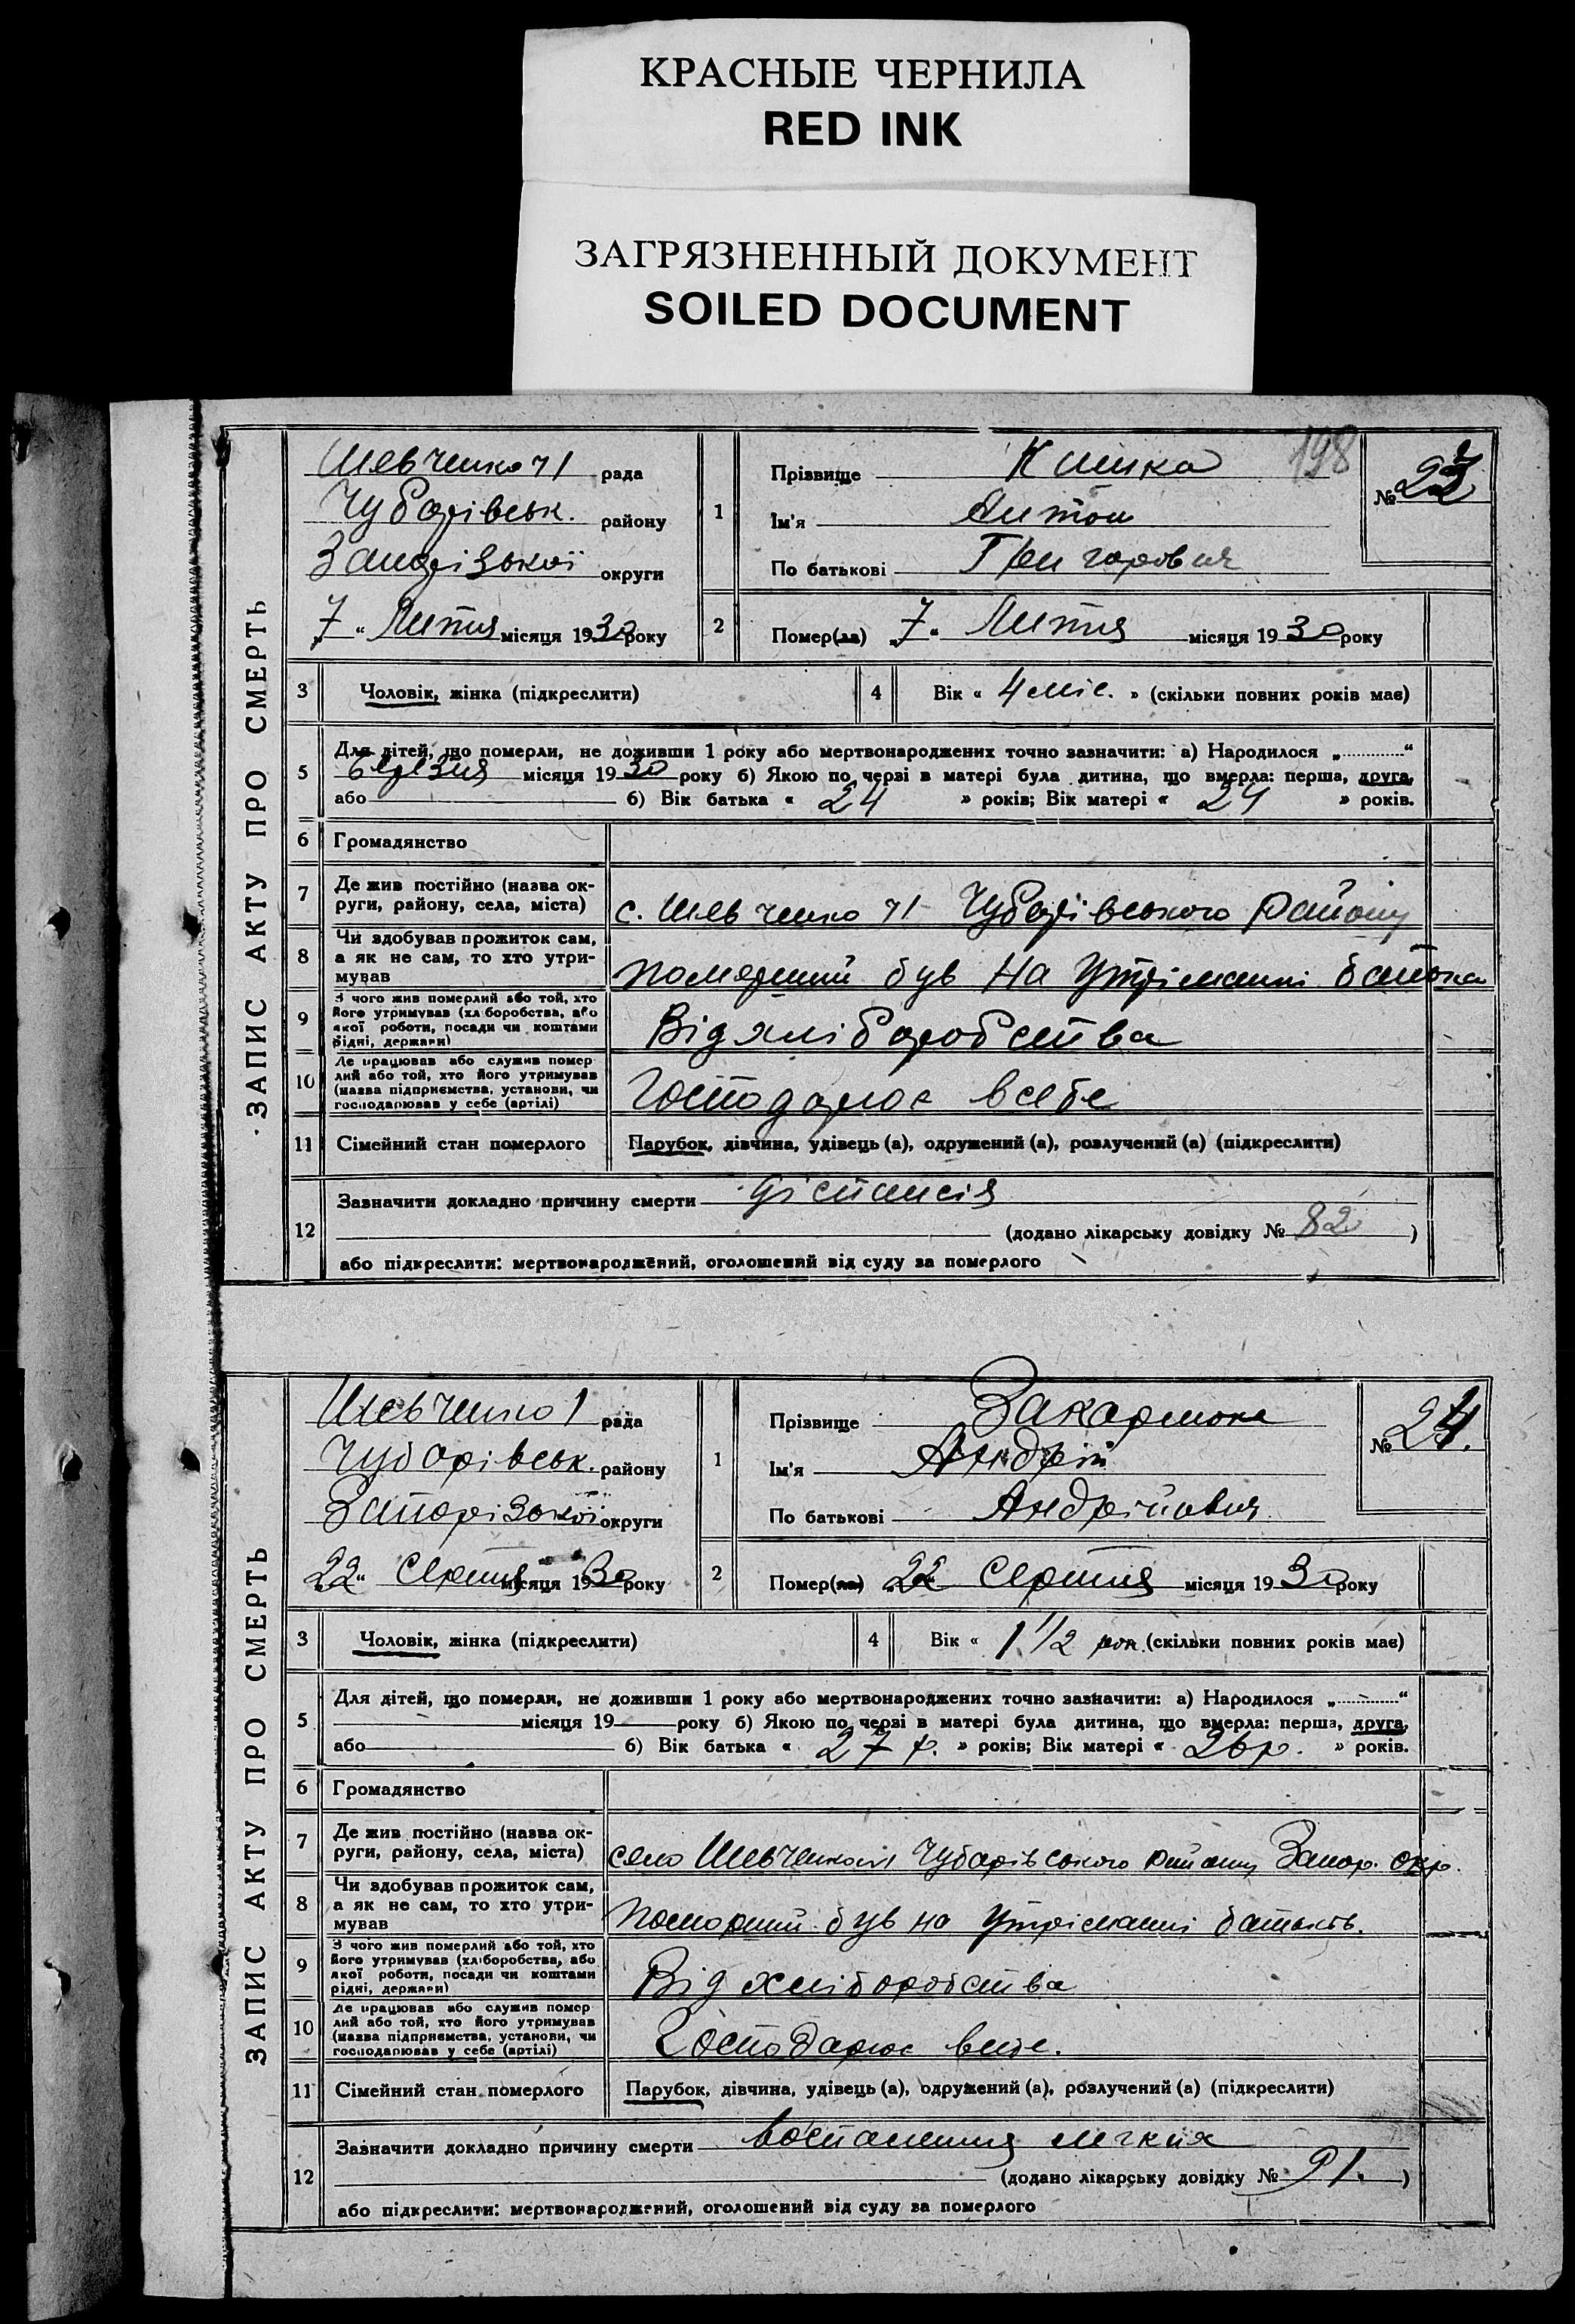 КРАСНЫЕ ЧЕРНИЛА
RED INK
ЗАГРЯЗНЕННЫЙ ДОКУМЕНТ
SOILED DOCUMENT
198
ЗАПИС АКТУ ПРО СМЕРТЬ
Шевченко №1 рада
Чубарівськ. району
Запорізької округи
„7“ Липня місяця 1930 року
1 Прізвище Кишка
Ім'я Антон
По батькові Григорович
№ 23
2 Помер(ла) „7“ Липня місяця 1930 року
3 Чоловік, жінка (підкреслити)
4 Вік « 4 міс. » (скільки повних років має)
5 Для дітей, що померли, не доживши 1 року або мертвонароджених точно зазначити: а) Народилося „ “
Березня місяця 1930 року б) Якою по черзі в матері була дитина, що вмерла: перша, друга,
або б) Вік батька « 24 » років; Вік матері « 24 » років.
6 Громадянство
7 Де жив постійно (назва ок-
руги, району, села, міста) с. Шевченко №1 Чубарівського району
8 Чи здобував прожиток сам,
а як не сам, то хто утри-
мував померший був на утріманні батька
9 З чого жив померлий або той, хто
його утримував (хліборобства, або
якої роботи, посади чи коштами
рідні, держави) Від хліборобства
10 Де працював або служив помер
лий або той, хто його утримував
(назва підприємства, установи, чи
господарював у себе (артілі) Господарює всебе
11 Сімейний стан померлого Парубок, дівчина, удівець (а), одружений (а), розлучений (а) (підкреслити)
12 Зазначити докладно причину смерти діспансія
(додано лікарську довідку № 82 )
або підкреслити: мертвонароджений, оголошений від суду за померлого
ЗАПИС АКТУ ПРО СМЕРТЬ
Шевченко 1 рада
Чубарівськ. району
Запорізької округи
„22“ Серпня місяця 1930 року
1 Прізвище
Ім'я Андрій
По батькові Андрійович
№ 24.
2 Помер(ла) „22“ Серпня місяця 1930 року
3 Чоловік, жінка (підкреслити)
4 Вік « 1 1/2 рок. (скільки повних років має)
5 Для дітей, що померли, не доживши 1 року або мертвонароджених точно зазначити: а) Народилося „ “
місяця 19 року б) Якою по черзі в матері була дитина, що вмерла: перша, друга,
або б) Вік батька « 27 р. » років; Вік матері « 26 р. » років.
6 Громадянство
7 Де жив постійно (назва ок-
руги, району, села, міста) село Шевченко №1 Чубарівського району Запор. окр.
8 Чи здобував прожиток сам,
а як не сам, то хто утри-
мував поморший був на утріманні батьків.
9 З чого жив померлий або той, хто
його утримував (хліборобства, або
якої роботи, посади чи коштами
рідні, держави) Від хліборобства
10 Де працював або служив помер
лий або той, хто його утримував
(назва підприємства, установи, чи
господарював у себе (артілі) Господарює всебе.
11 Сімейний стан померлого Парубок, дівчина, удівець (а), одружений (а), розлучений (а) (підкреслити)
12 Зазначити докладно причину смерти воспаления легких
(додано лікарську довідку № 91. )
або підкреслити: мертвонароджений, оголошений від суду за померлого